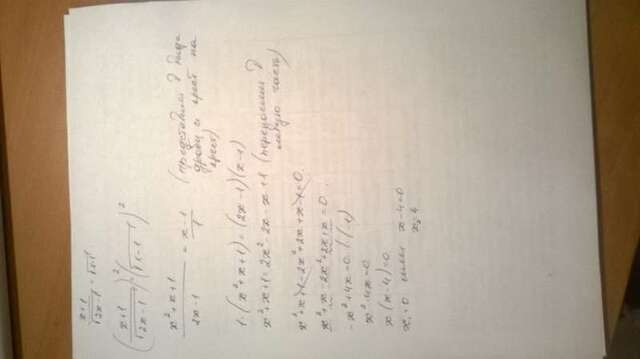 x+1/√2x-1 = √x-1
(x+1/√2x-1)² = (√x-1)²
x²+x+1/2x-1 = x-1/1 (представим в виде дроби и крест на крест)
1·(x²+x+1) = (2x-1)(x-1)
x²+x+1 = 2x²-2x-x+1 (переносим в левую часть)
x²+x+1-2x²+2x+x-1=0
x²+x-2x²+2x+x=0
-x²+4x=0 |(-1)
x²-4x=0
x(x-4)=0
x₁=0 или x-4=0
x₂=4